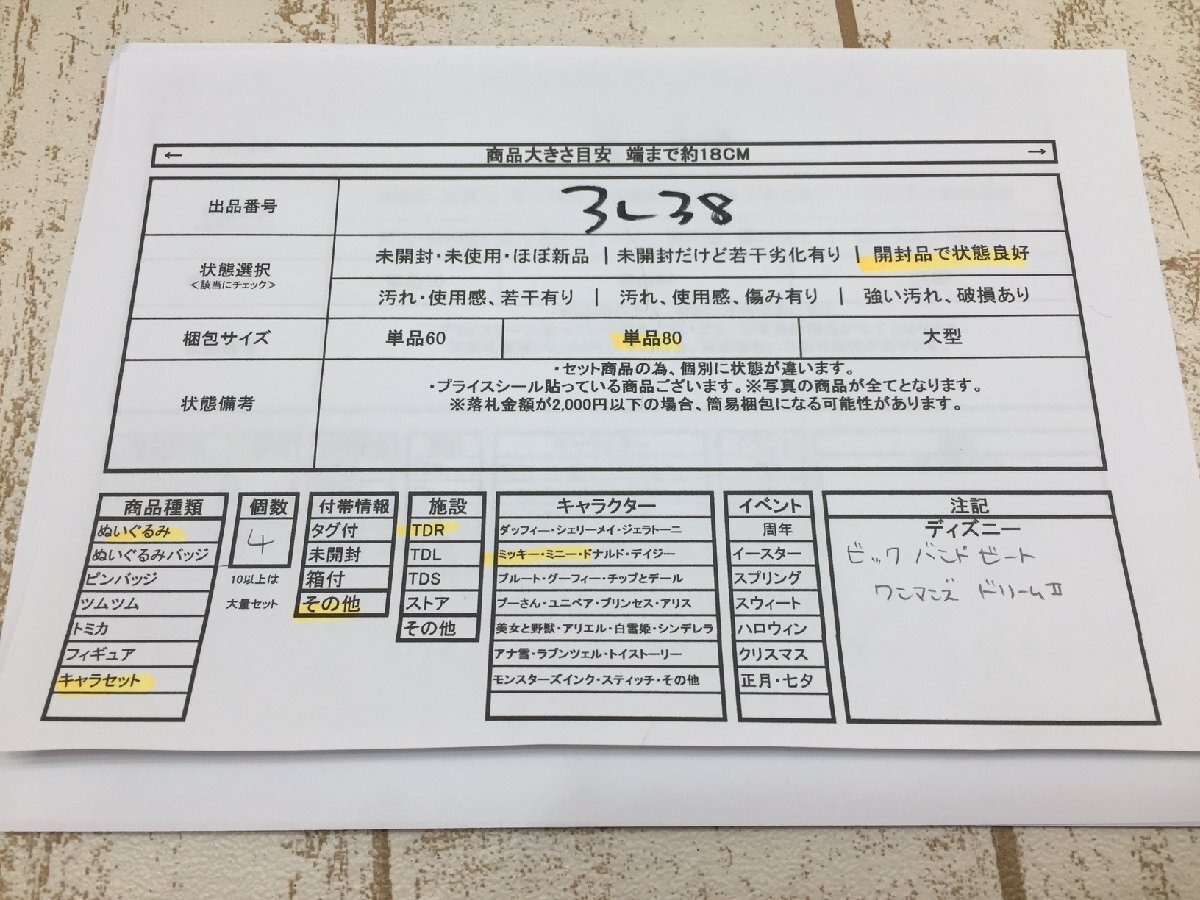 ← 商品大きさ目安 端まで約18CM →
出品番号 3L38
状態選択 未開封・未使用・ほぼ新品 | 未開封だけど若干劣化有り | 開封品で状態良好
<該当にチェック>
汚れ・使用感、若干有り | 汚れ、使用感、傷み有り | 強い汚れ、破損あり
梱包サイズ 単品60 単品80 大型
状態備考
・セット商品の為、個別に状態が違います。
・プライスシール貼っている商品ございます。※写真の商品が全てとなります。
※落札金額が2,000円以下の場合、簡易梱包になる可能性があります。
商品種類
ぬいぐるみ
ぬいぐるみバッジ
ピンバッジ
ツムツム
トミカ
フィギュア
キャラセット
個数
4
10以上は
大量セット
付帯情報
タグ付
未開封
箱付
その他
施設
TDR
TDL
TDS
ストア
その他
キャラクター
ダッフィー・シェリーメイ・ジェラトーニ
ミッキー・ミニー・ドナルド・デイジー
プルート・グーフィー・チップとデール
プーさん・ユニベア・プリンセス・アリス
美女と野獣・アリエル・白雪姫・シンデレラ
アナ雪・ラプンツェル・トイストーリー
モンスターズインク・スティッチ・その他
イベント
周年
イースター
スプリング
スウィート
ハロウィン
クリスマス
正月・七夕
注記
ディズニー
ビックバンドビート
ワンマンズドリームⅡ